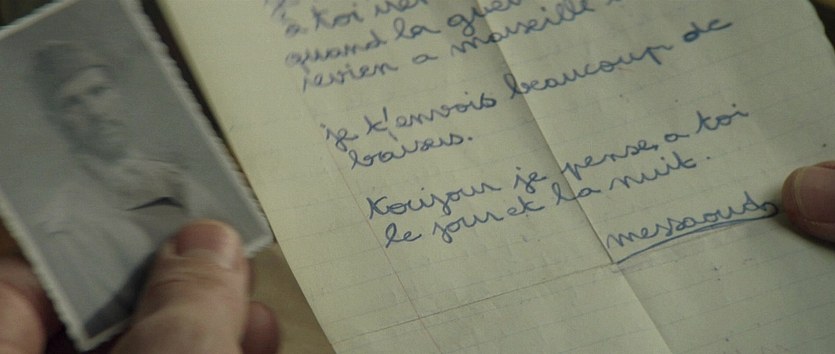 à toi
quand la guer
revien a marseille
je t'envois beaucoup de
baisers.
toujour je pense a toi
le jour et la nuit.
messaoud